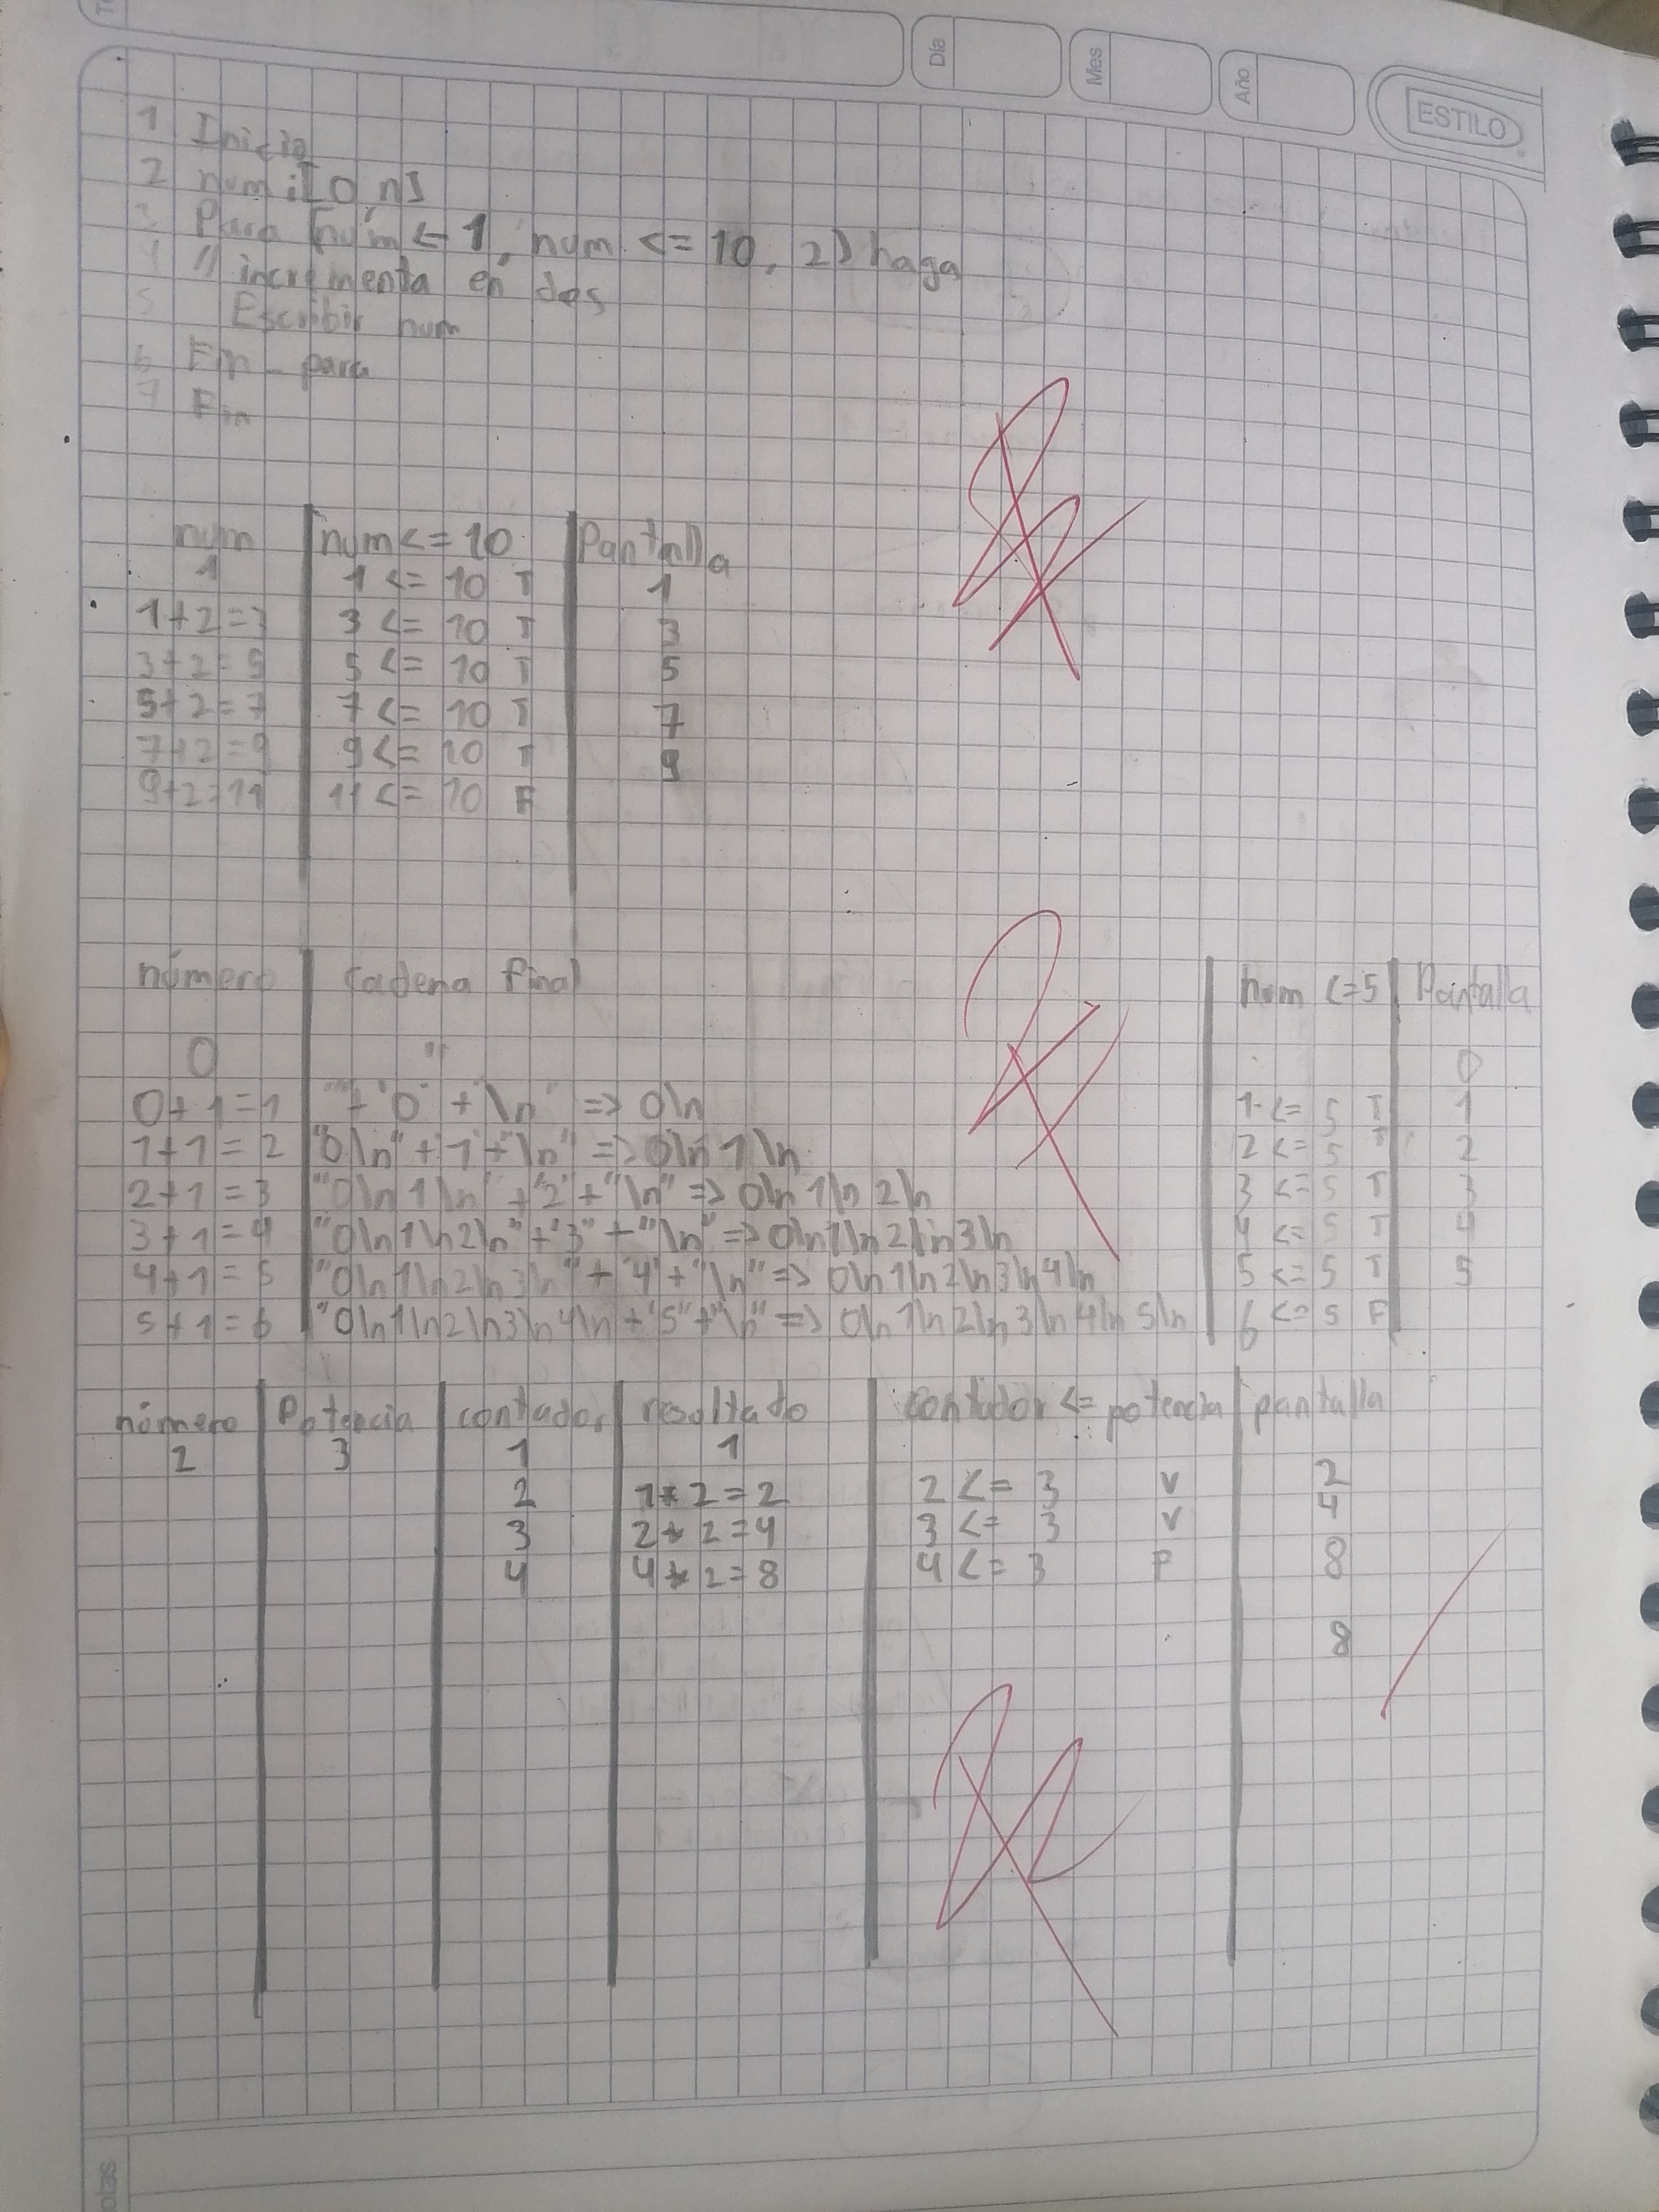 Día Mes Año ESTILO
1 Inicio
2 num:[0,n]
3 Para (num <- 1, num <= 10, 2) haga
4 // incrementa en dos
5 Escribir num
6 Fin - para
7 Fin
num | num <= 10 | Pantalla
1 | 1 <= 10 T | 1
1+2=3 | 3 <= 10 T | 3
3+2=5 | 5 <= 10 T | 5
5+2=7 | 7 <= 10 T | 7
7+2=9 | 9 <= 10 T | 9
9+2=11 | 11 <= 10 F
número | cadena final | num <=5 | Pantalla
0 | " | 0
0+1=1 | ""+"0"+\n" => 0\n | 1 <= 5 T | 1
1+1=2 | "0\n"+"1"+"\n" => 0\n 1\n | 2 <= 5 T | 2
2+1=3 | "0\n1\n"+"2"+"\n" => 0\n 1\n 2\n | 3 <= 5 T | 3
3+1=4 | "0\n1\n2\n"+"3"+"\n" => 0\n1\n2\n3\n | 4 <= 5 T | 4
4+1=5 | "0\n1\n2\n3\n"+"4"+"\n" => 0\n1\n2\n3\n4\n | 5 <= 5 T | 5
5+1=6 | "0\n1\n2\n3\n4\n+"5"+"\n" => 0\n1\n2\n3\n4\n5\n | 6 <= 5 F
número | Potencia | contador | resultado | contador <= potencia | pantalla
2 | 3 | 1 | 1
2 | 1*2=2 | 2 <= 3 V | 2
3 | 2*2=4 | 3 <= 3 V | 4
4 | 4*2=8 | 4 <= 3 F | 8
8
otas